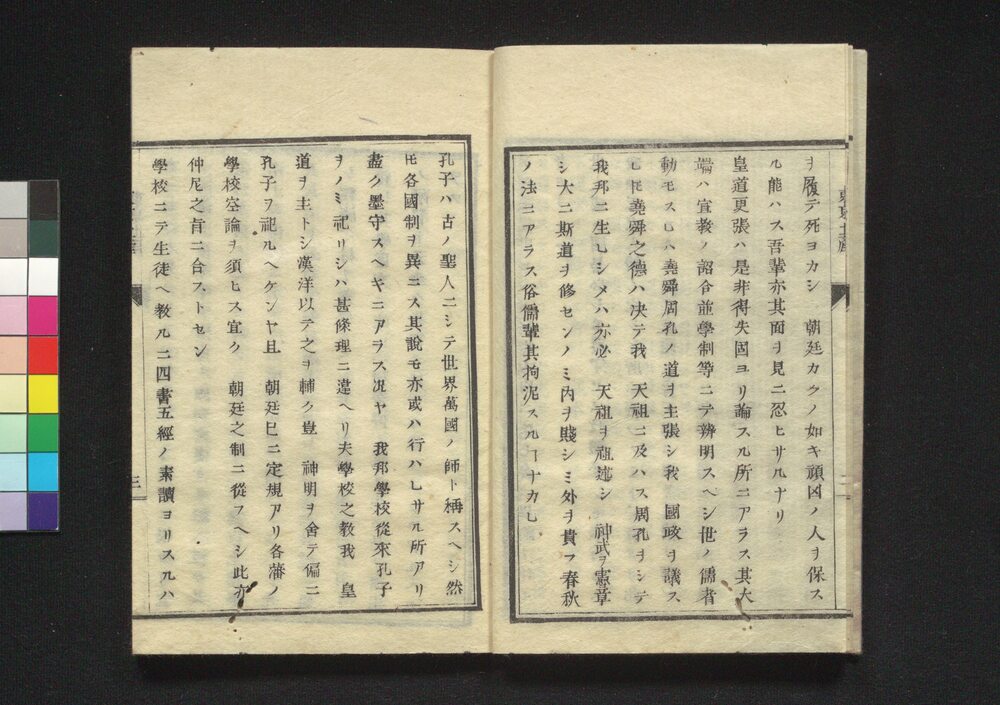 ヲ履テ死ヨカシ　朝廷カクノ如キ頑囟ノ人ヲ保ス
ル能ハス吾輩亦其面ヲ見ニ忍ヒサルナリ
皇道更張ハ是非得失固ヨリ論スル所ニアラス其大
端ハ宣教ノ詔令並學制等ニテ辨明スヘシ世ノ儒者
動モスレハ堯舜周孔ノ道ヲ主張シ我　國政ヲ議ス
レ𪜈堯舜之德ハ决テ我　天祖ニ及ハス周孔ヲシテ
我邦ニ生レシメハ亦必　天祖ヲ祖述シ　神武ヲ憲章
シ大ニ斯道ヲ修センノミ內ヲ賤シミ外ヲ貴フ春秋
ノ法ニアラス俗儒輩其拘泥スルヿナカレ
孔子ハ古ノ聖人ニシテ世界萬國ノ師ト稱スヘシ然
𪜈各國制ヲ異ニス其說モ亦或ハ行ハレサル所アリ
盡ク墨守スヘキニアラス况ヤ　我邦學校從來孔子
ヲノミ祀リシハ甚條理ニ違ヘリ夫學校之教我　皇
道ヲ主トシ漢洋以テ之ヲ輔ク豈　神明ヲ舍テ偏ニ
孔子ヲ祀ルヘケンヤ且　朝廷巳ニ定規アリ各藩ノ
學校空論ヲ須ヒス宜ク　朝廷之制ニ從フヘシ此亦
仲尼之旨ニ合ストセン
學校ニテ生徒ヘ教ルニ四書五經ノ素讀ヨリスルハ
三